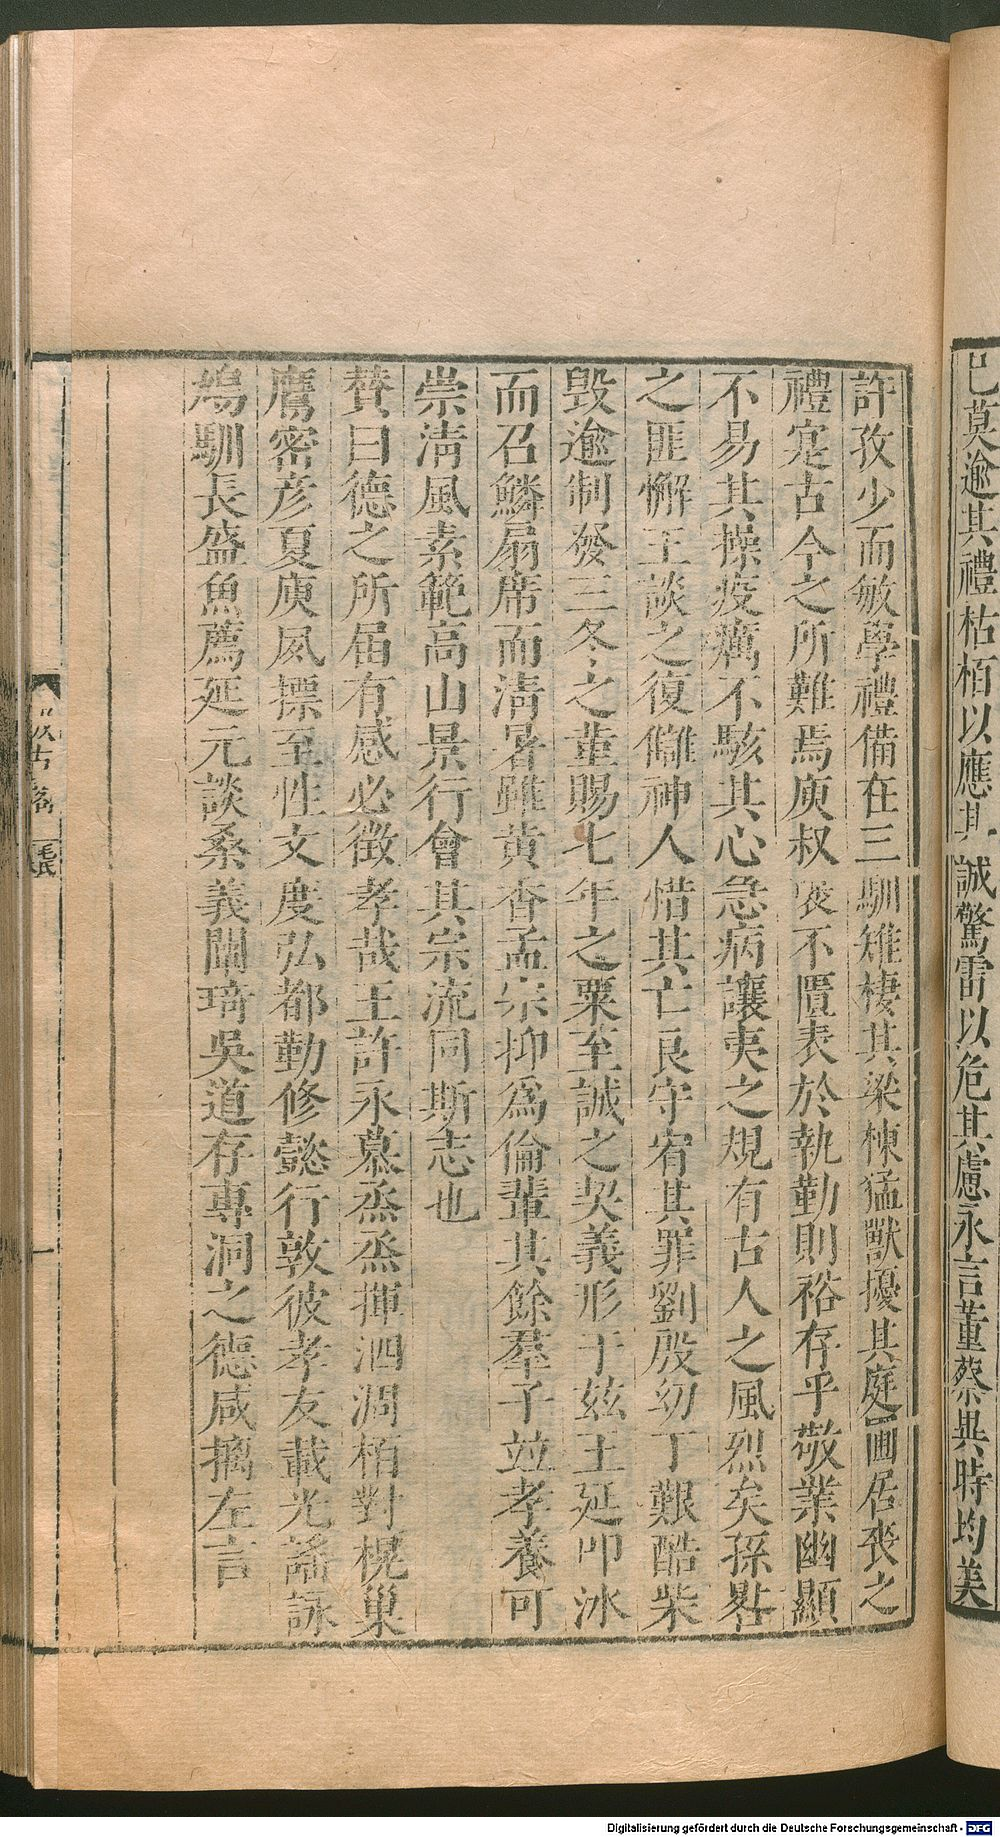 已莫逾其禮枯栢以應其誠驚雷以危其慮永言董蔡異時均美
許孜少而敏學禮備在三馴雉棲其梁棟猛獸擾其庭圃居喪之
禮寔古今之所難焉庾叔裒不匱表於執勤則裕存乎敬業幽顯
不易其操疫癘不駭其心急病讓夷之規有古人之風烈矣孫晷
之匪懈王談之復讎神人惜其亡良守宥其罪劉殷幼丁艱酷柴
毀逾制發三冬之菫賜七年之粟至誠之契義形于兹王延叩冰
而召鱗扇席而清暑雖黄香孟宗抑爲倫輩其餘羣子竝孝養可
崇清風素範高山景行會其宗流同斯志也
賛曰德之所届有感必徴孝哉王許永慕烝烝揮泗凋栢對榥巢
鷹密彦夏庾夙摽至性文度弘都勤修懿行敦彼孝友載光謠詠
鳩馴長盛魚薦延元談桑義闡琦吳道存專洞之德咸摛左言
汲古閣
毛氏